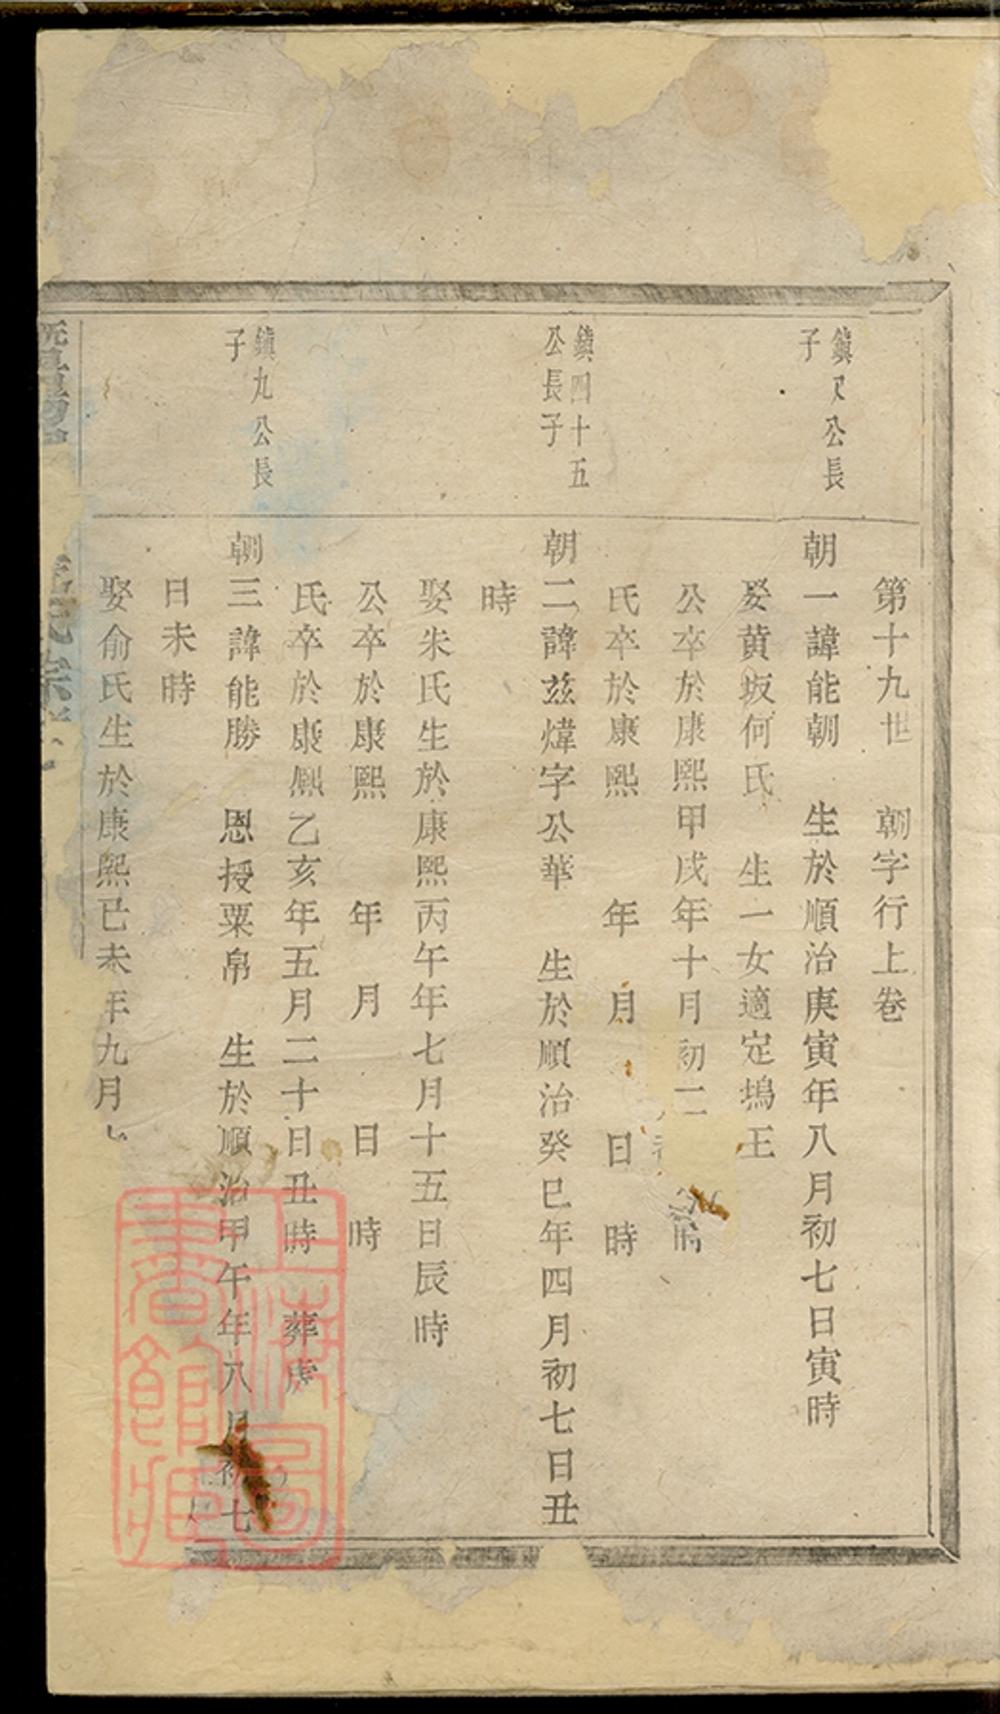 第十九世　朝字行上卷
鎮又公長
子
朝一諱能朝　生於順治庚寅年八月初七日寅時
娶黄坂何氏　生一女適定塢王
公卒於康熙甲戌年十月初二　時
氏卒於康熙　年　月　日　時
鎮四十五
公長子
朝二諱玆煒字公華　生於順治癸巳年四月初七日丑
時
娶朱氏生於康熙丙午年七月十五日辰時
公卒於康熙　年　月　日　時
氏卒於康熙乙亥年五月二十日丑時　葬
鎮九公長
子
朝三諱能勝　恩授粟帛　生於順治甲午年八月初七
日未時
娶俞氏生於康熙已未年九月
氏宗
上海圖
書館藏